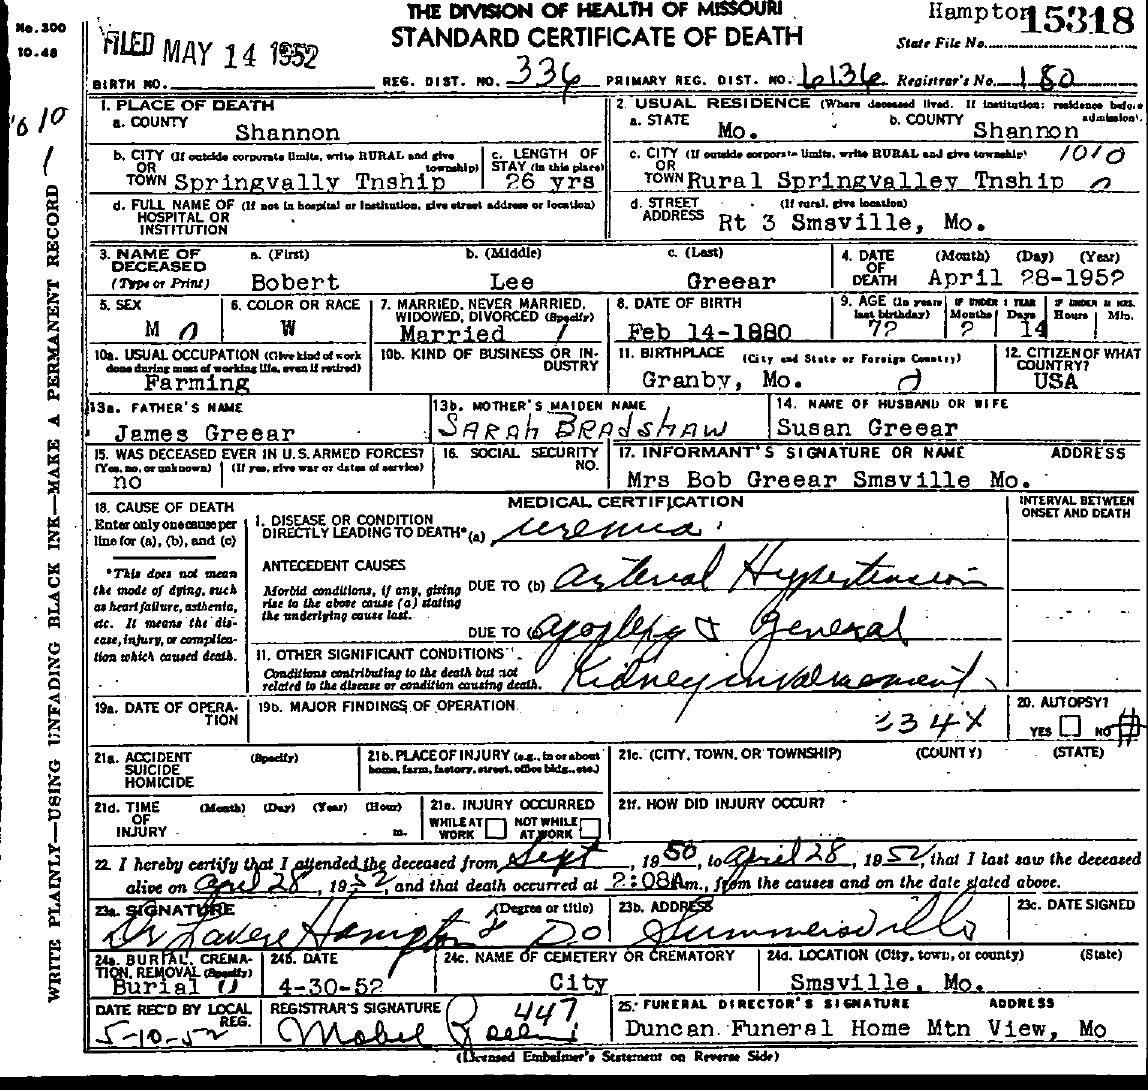 THE DIVISION OF HEALTH OF MISSOURI
Hampton 15318
No. 300
10-48
FILED MAY 14 1952
STANDARD CERTIFICATE OF DEATH
State File No.
BIRTH NO. REG. DIST. NO. 336 PRIMARY REG. DIST. NO. 6136 Registrar's No. 180
WRITE PLAINLY—USING UNFADING BLACK INK—MAKE A PERMANENT RECORD
1. PLACE OF DEATH
a. COUNTY Shannon
2. USUAL RESIDENCE (Where deceased lived. If institution: residence before admission).
a. STATE Mo. b. COUNTY Shannon
b. CITY (If outside corporate limits, write RURAL and give township)
OR
TOWN Springvally Tnship
c. LENGTH OF STAY (in this place)
26 yrs
c. CITY (If outside corporate limits, write RURAL and give township) 1010
OR
TOWN Rural Springvalley Tnship
d. FULL NAME OF (If not in hospital or institution, give street address or location)
HOSPITAL OR
INSTITUTION
d. STREET (If rural, give location)
ADDRESS Rt 3 Smsville, Mo.
3. NAME OF DECEASED (Type or Print)
a. (First) b. (Middle) c. (Last)
Bobert Lee Greear
4. DATE OF DEATH (Month) (Day) (Year)
April 28-1952
5. SEX
M
6. COLOR OR RACE
W
7. MARRIED, NEVER MARRIED, WIDOWED, DIVORCED (Specify)
Married
8. DATE OF BIRTH
Feb 14-1880
9. AGE (In years last birthday) 72
IF UNDER 1 YEAR Months 2 Days 14
IF UNDER 24 HRS. Hours Min.
10a. USUAL OCCUPATION (Give kind of work done during most of working life, even if retired)
Farming
10b. KIND OF BUSINESS OR INDUSTRY
11. BIRTHPLACE (City and State or Foreign Country)
Granby, Mo.
12. CITIZEN OF WHAT COUNTRY?
USA
13a. FATHER'S NAME
James Greear
13b. MOTHER'S MAIDEN NAME
SARAH BRADSHAW
14. NAME OF HUSBAND OR WIFE
Susan Greear
15. WAS DECEASED EVER IN U.S. ARMED FORCES?
(Yes, no, or unknown) (If yes, give war or dates of service)
no
16. SOCIAL SECURITY NO.
17. INFORMANT'S SIGNATURE OR NAME ADDRESS
Mrs Bob Greear Smsville Mo.
18. CAUSE OF DEATH
Enter only one cause per line for (a), (b), and (c)
*This does not mean the mode of dying, such as heart failure, asthenia, etc. It means the disease, injury, or complication which caused death.
MEDICAL CERTIFICATION
INTERVAL BETWEEN ONSET AND DEATH
I. DISEASE OR CONDITION
DIRECTLY LEADING TO DEATH* (a) uremia
ANTECEDENT CAUSES
Morbid conditions, if any, giving rise to the above cause (a) stating the underlying cause last.
DUE TO (b) Arterial Hypertension
DUE TO (c) apoplexy & General
II. OTHER SIGNIFICANT CONDITIONS
Conditions contributing to the death but not related to the disease or condition causing death.
Kidney involvement
19a. DATE OF OPERATION
19b. MAJOR FINDINGS OF OPERATION
334X
20. AUTOPSY?
YES NO
21a. ACCIDENT (Specify)
SUICIDE
HOMICIDE
21b. PLACE OF INJURY (e.g., in or about home, farm, factory, street, office bldg., etc.)
21c. (CITY, TOWN, OR TOWNSHIP) (COUNTY) (STATE)
21d. TIME (Month) (Day) (Year) (Hour)
OF
INJURY m.
21e. INJURY OCCURRED
WHILE AT WORK NOT WHILE AT WORK
21f. HOW DID INJURY OCCUR?
22. I hereby certify that I attended the deceased from Sept, 1950, to April 28, 1952, that I last saw the deceased
alive on April 28, 1952, and that death occurred at 2:08A m., from the causes and on the date stated above.
23a. SIGNATURE (Degree or title)
Dr Lavere Hampton DO
23b. ADDRESS
Summersville
23c. DATE SIGNED
24a. BURIAL, CREMATION, REMOVAL (Specify)
Burial
24b. DATE
4-30-52
24c. NAME OF CEMETERY OR CREMATORY
City
24d. LOCATION (City, town, or county) (State)
Smsville, Mo.
DATE REC'D BY LOCAL REG.
5-10-52
REGISTRAR'S SIGNATURE 447
Mabel
25. FUNERAL DIRECTOR'S SIGNATURE ADDRESS
Duncan Funeral Home Mtn View, Mo
(Licensed Embalmer's Statement on Reverse Side)